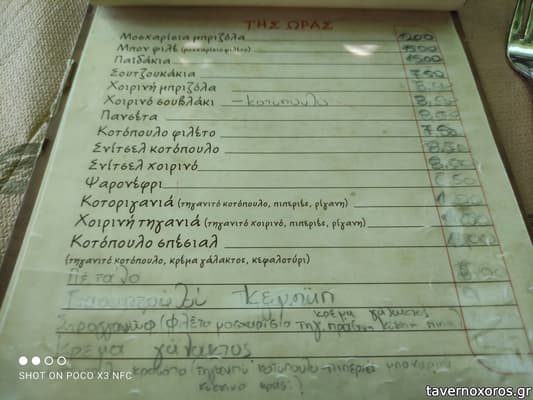 ΤΗΣ ΩΡΑΣ
Μοσχαρίσια μπριζόλα 1200
Μπον φιλέ (μοσχαρίσιο φιλέτο) 1500
Παϊδάκια 1500
Σουτζουκάκια 7,50
Χοιρινή μπριζόλα
Χοιρινό σουβλάκι – κοτόπουλο 8,50
Πανσέτα 8,00
Κοτόπουλο φιλέτο 7,50
Σνίτσελ κοτόπουλο 8,50
Σνίτσελ χοιρινό 8,50
Ψαρονέφρι
Κοτοριγανιά (τηγανιτό κοτόπουλο, πιπεριές, ρίγανη)
Χοιρινή τηγανιά (τηγανιτό χοιρινό, πιπεριές, ρίγανη)
Κοτόπουλο σπέσιαλ
(τηγανιτό κοτόπουλο, κρέμα γάλακτος, κεφαλοτύρι)
Πέταλο
κεμπάπ
κρέμα γάλακτος
(φιλέτο μοσχαρίσιο τηγ.
Κρέμα γάλακτος
(τηγανιτό κοτόπουλο - πιπεριά
κόκκινο κρασί)
SHOT ON POCO X3 NFC
tavernoxoros.gr